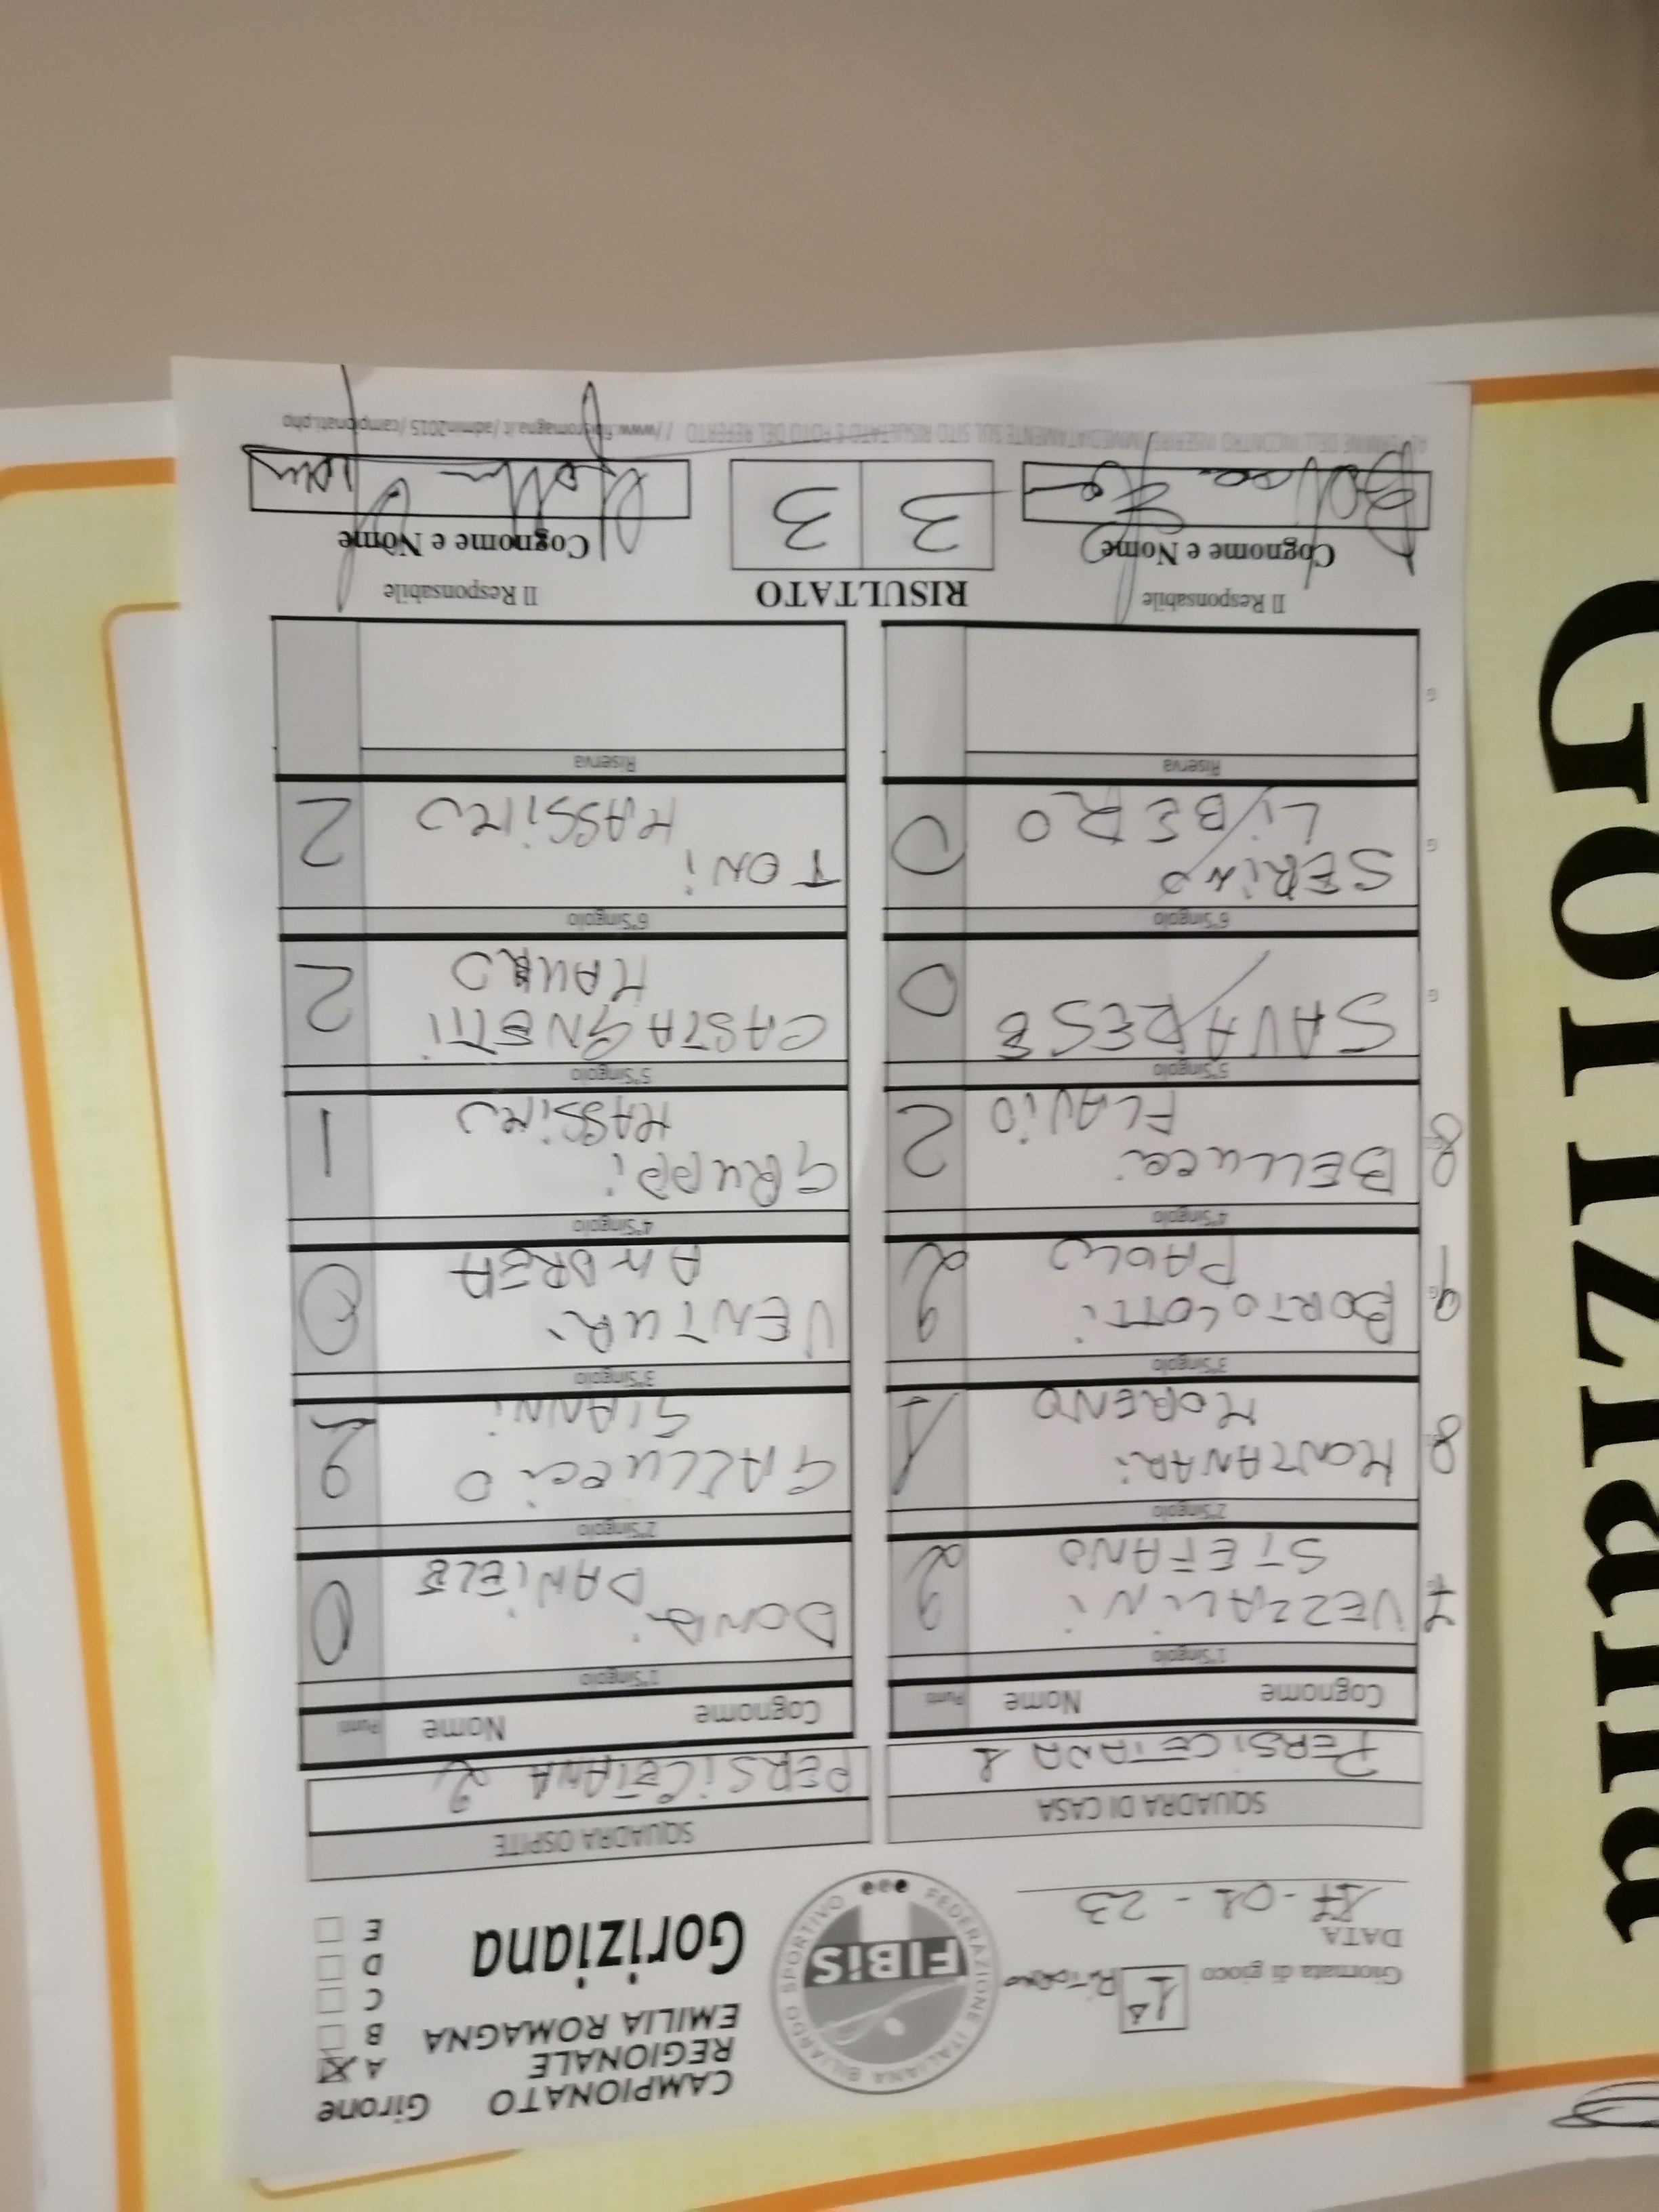 CAMPIONATO
REGIONALE
EMILIA ROMAGNA
Goriziana
Girone
A
B
C
D
E
FEDERAZIONE ITALIANA BILIARDO SPORTIVO
FIBiS
Giornata di gioco 1ª RITORNO
DATA
17-01-23
SQUADRA DI CASA
PERSICETANA 1
Cognome Nome Punti
1°Singolo
VEZZALINI 2
STEFANO
2°Singolo
8 MONTANARI 1
MORENO
3°Singolo
9 BORTOLOTTI 2
PAOLO
4°Singolo
8 BELLUCCI 2
FLAVIO
5°Singolo
G SAVARESE 0
6°Singolo
G SERINO 0
LIBERO
Riserva
G
SQUADRA OSPITE
PERSICETANA 2
Cognome Nome Punti
1°Singolo
DONDI 0
DANIELE
2°Singolo
GALLUCCIO 2
GIANNI
3°Singolo
VENTURI 0
ANDREA
4°Singolo
GRUPPI 1
MASSIMO
5°Singolo
CASTAGNETTI 2
MAURO
6°Singolo
TONI 2
MASSIMO
Riserva
Il Responsabile
Cognome e Nome
RISULTATO
3 3
Il Responsabile
Cognome e Nome
AL TERMINE DELL'INCONTRO INSERIRE IMMEDIATAMENTE SUL SITO RISULTATO E FOTO DEL REFERTO //www.fibisromagna.it/admin2015/campionati.php
Goriziana